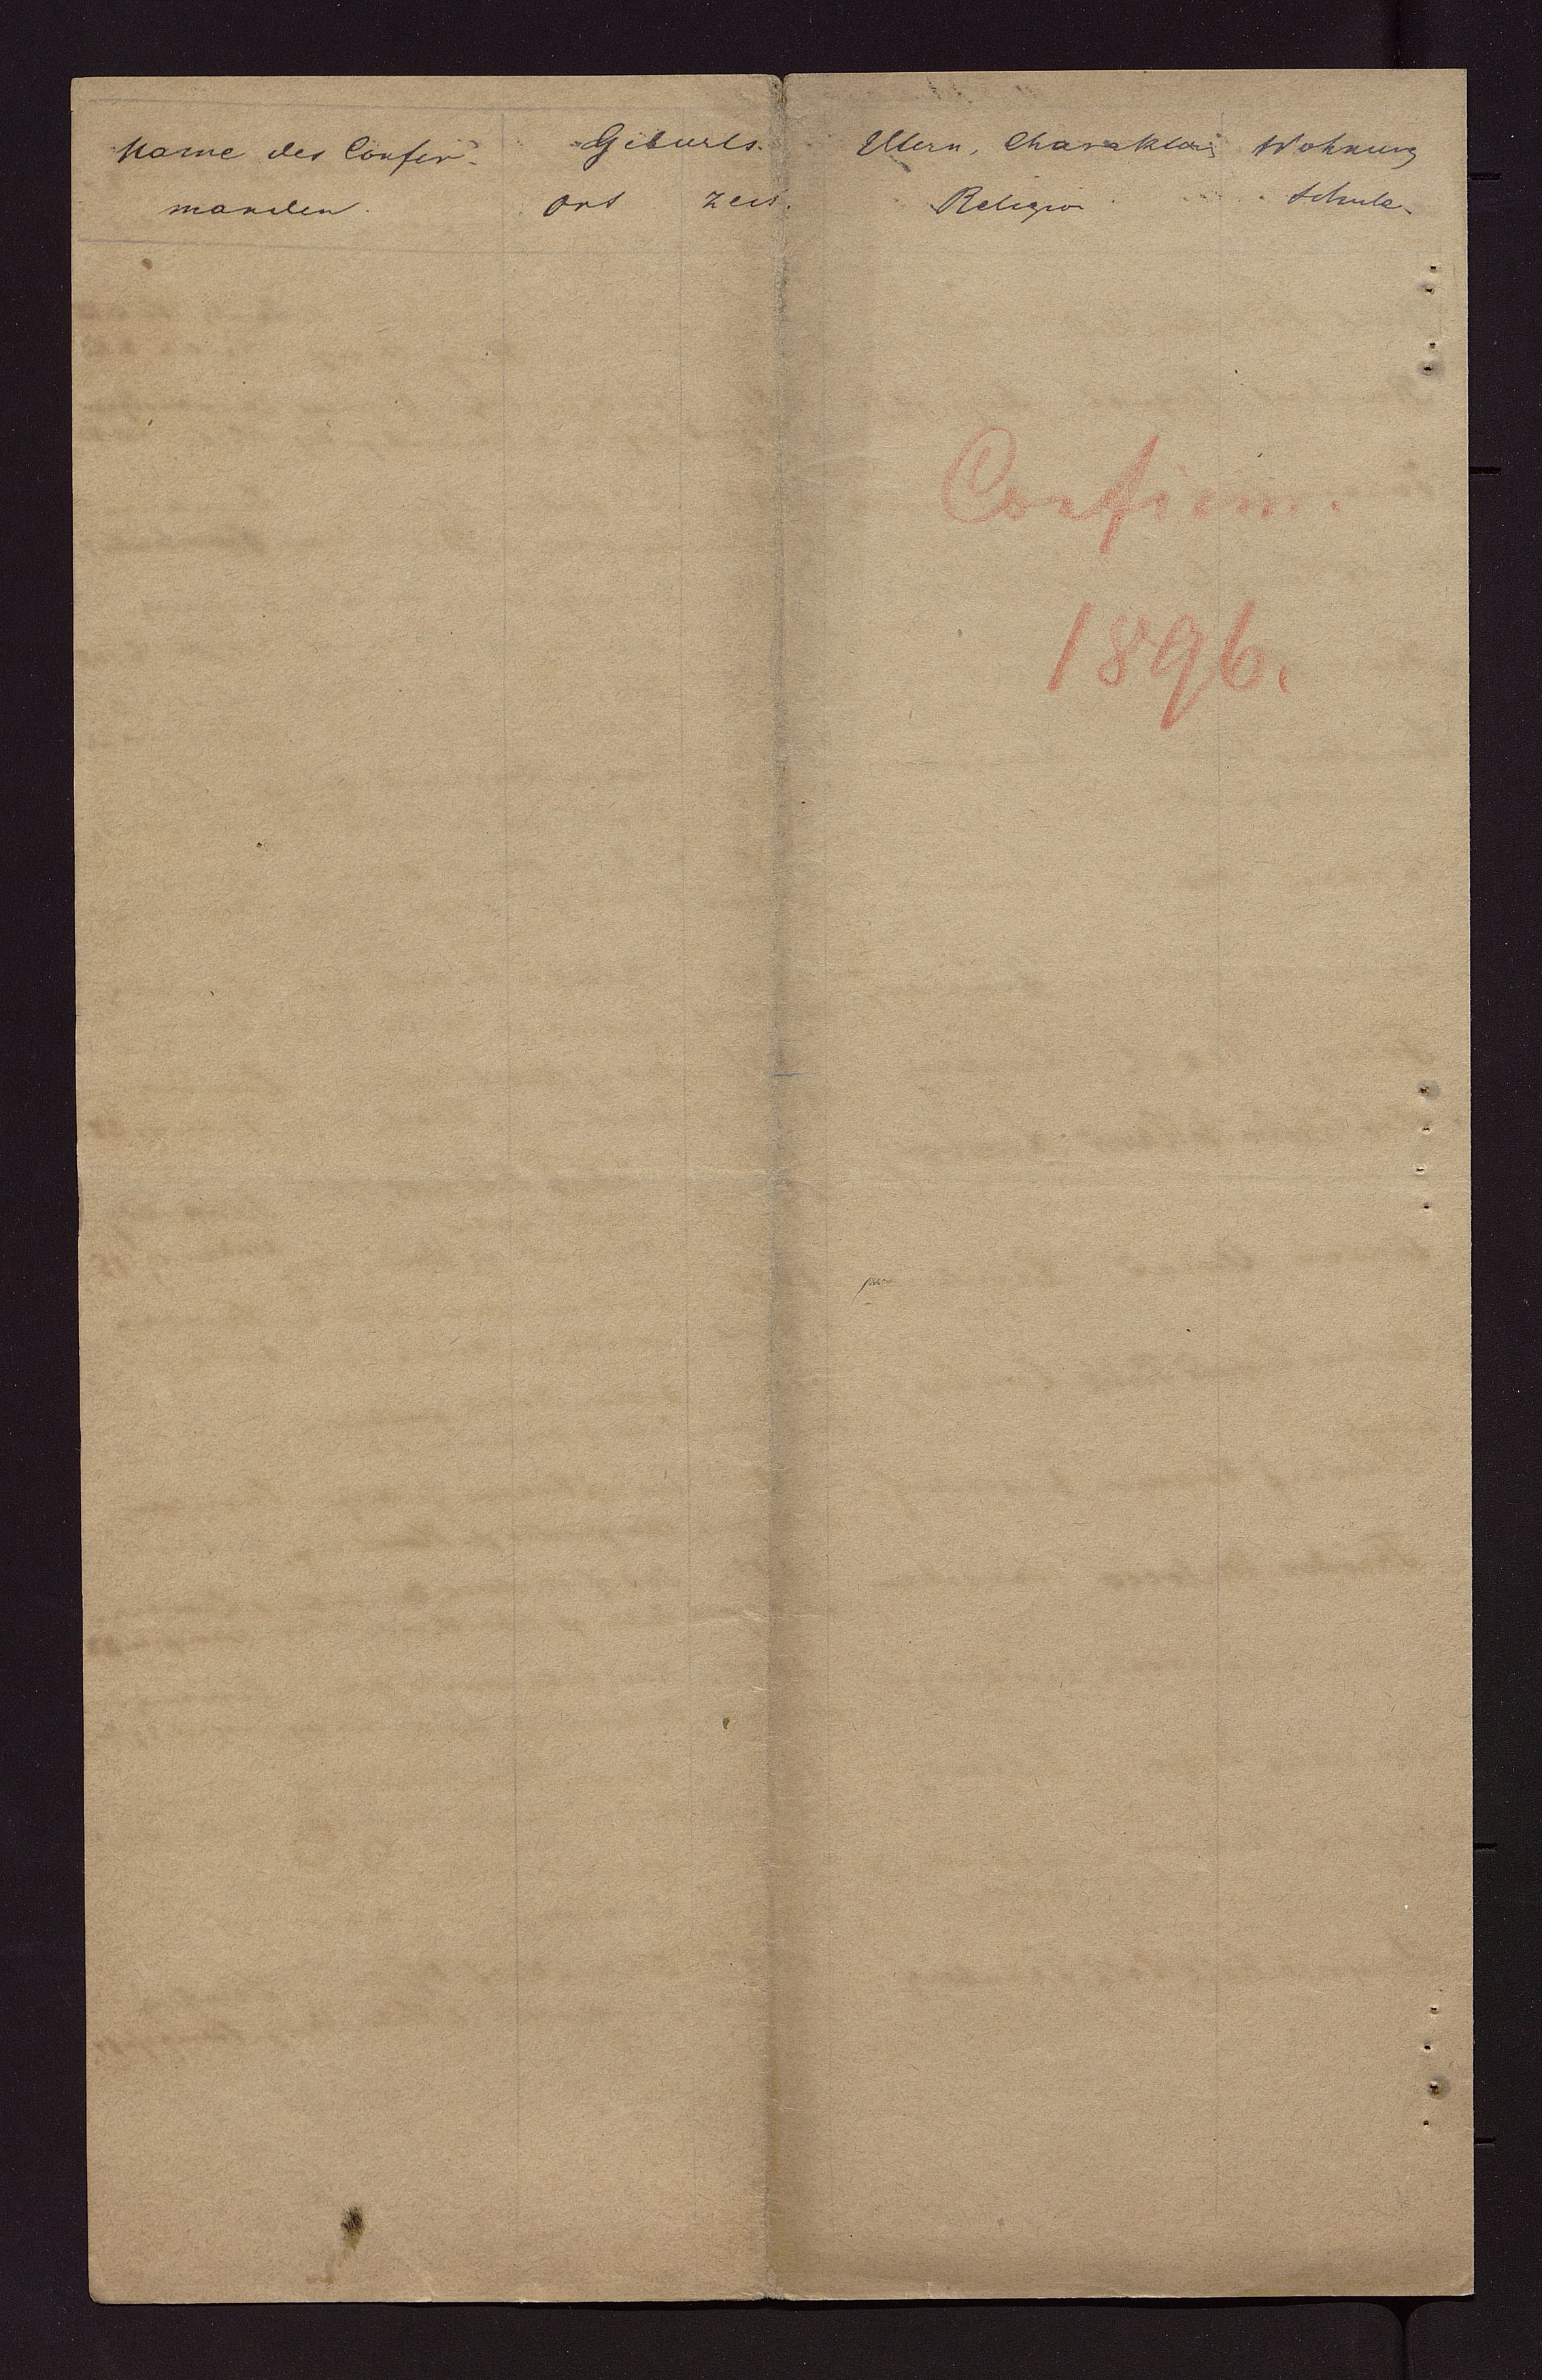 Name des Confir-
manden.
Geburts.
Ort Zeit.
Eltern, Charakter,
Religion
Wohnung
Schule.
Confirm.
1896.